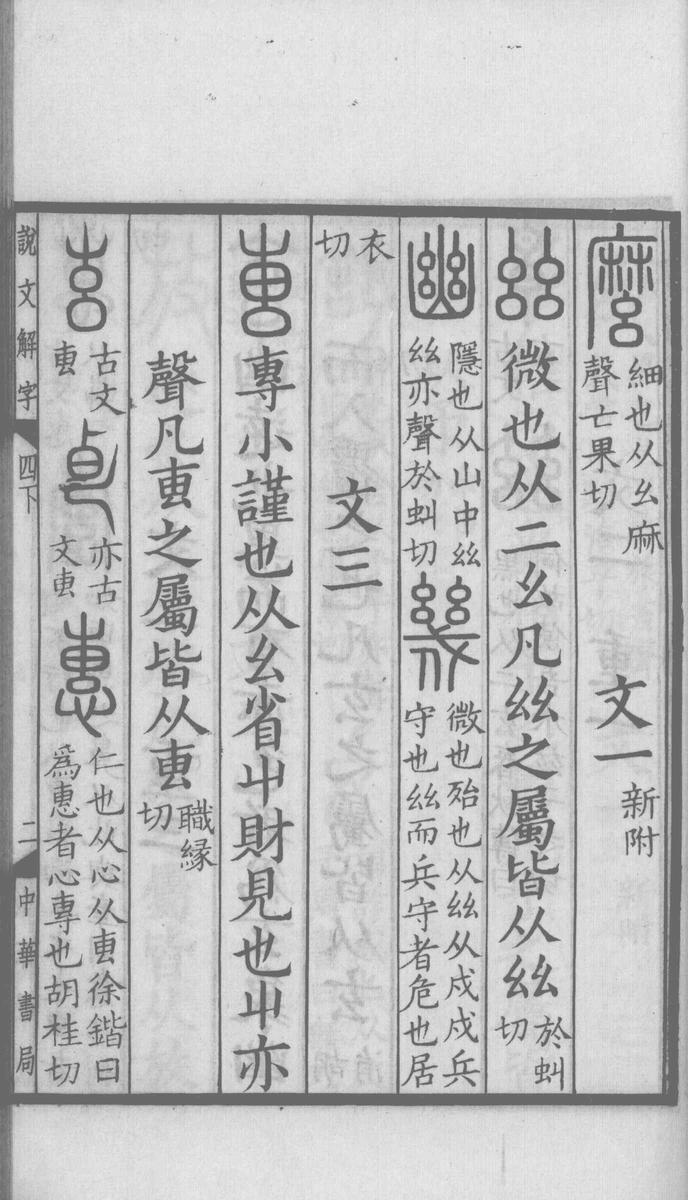 麼細也从幺麻聲亡果切　文一新附
𢆶微也从二幺凡𢆶之屬皆从𢆶於虯切
幽隱也从山中𢆶𢆶亦聲於虯切幾微也殆也从𢆶从戍戍兵守也𢆶而兵守者危也居
衣切　文三
叀專小謹也从幺省屮財見也屮亦
聲凡叀之屬皆从叀職緣切
古文叀　亦古文叀惠仁也从心从叀徐鍇曰爲惠者心專也胡桂切
說文解字　四下　二　中華書局